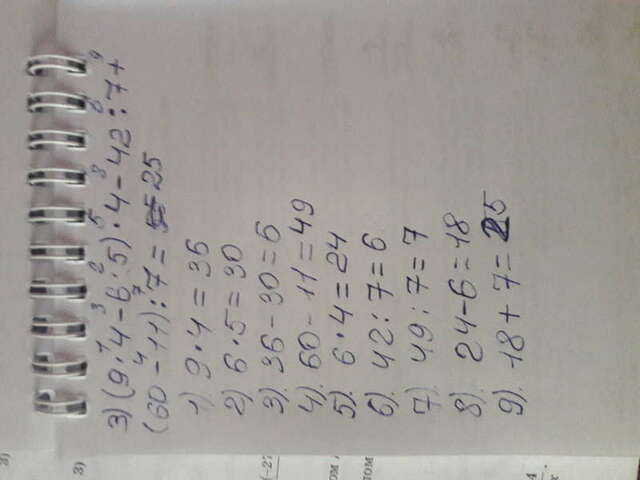 3) (9·4-6·5)·4-42:7+
(60-11):7=25
1) 9·4=36
2) 6·5=30
3) 36-30=6
4) 60-11=49
5) 6·4=24
6) 42:7=6
7) 49:7=7
8) 24-6=18
9) 18+7=25
3)